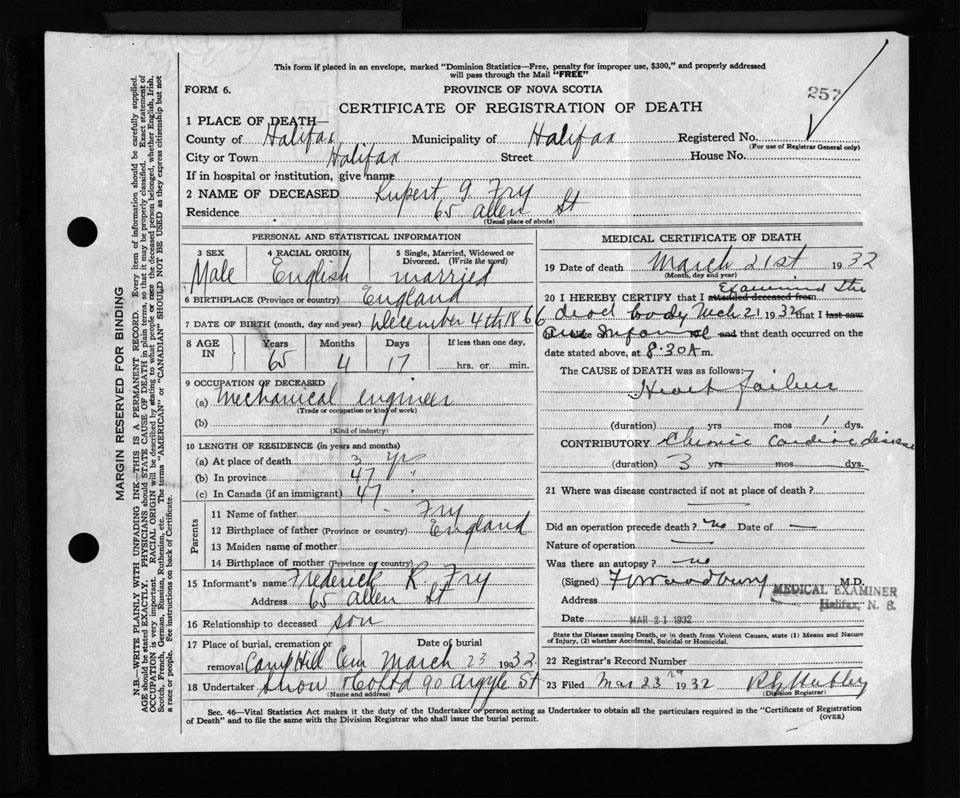 This form if placed in an envelope, marked "Dominion Statistics—Free, penalty for improper use, $300," and properly addressed
will pass through the Mail "FREE"
FORM 6.
PROVINCE OF NOVA SCOTIA
257
CERTIFICATE OF REGISTRATION OF DEATH
1 PLACE OF DEATH—
County of Halifax Municipality of Halifax Registered No.
(For use of Registrar General only)
City or Town Halifax Street House No.
If in hospital or institution, give name
2 NAME OF DECEASED Rupert G. Fry
Residence 65 Allen St
(Usual place of abode)
PERSONAL AND STATISTICAL INFORMATION
3 SEX 4 RACIAL ORIGIN 5 Single, Married, Widowed or
Divorced. (Write the word)
Male English married
6 BIRTHPLACE (Province or country) England
7 DATE OF BIRTH (month, day and year) December 4th 1866
8 AGE IN Years Months Days If less than one day,
65 4 17 hrs. or min.
9 OCCUPATION OF DECEASED
(a) Mechanical engineer
(Trade or occupation or kind of work)
(b)
(Kind of industry)
10 LENGTH OF RESIDENCE (in years and months)
(a) At place of death 3 yrs
(b) In province 47 "
(c) In Canada (if an immigrant) 47 "
Parents
11 Name of father Fry
12 Birthplace of father (Province or country) England
13 Maiden name of mother
14 Birthplace of mother (Province or country)
15 Informant's name Frederick R. Fry
Address 65 Allen St
16 Relationship to deceased son
17 Place of burial, cremation or removal Date of burial
Camp Hill Cem March 23 1932
18 Undertaker Snow & Co Ltd 90 Argyle St
(Name and address)
MEDICAL CERTIFICATE OF DEATH
19 Date of death March 21st 1932
(Month, day and year)
20 I HEREBY CERTIFY that I attended deceased from Examined the
dead body Mch 21 1932 that I last saw
and that death occurred on the
date stated above, at 8.30 A m.
The CAUSE of DEATH was as follows:
Heart failure
(duration) yrs mos 1 dys.
CONTRIBUTORY Chronic Cardiac disease
(duration) 3 yrs mos dys.
21 Where was disease contracted if not at place of death?
Did an operation precede death? no Date of —
Nature of operation —
Was there an autopsy? no
(Signed) F Woodbury M.D.
MEDICAL EXAMINER
Address Halifax, N. S.
Date MAR 21 1932
State the Disease causing Death, or in death from Violent Causes, state (1) Means and Nature
of Injury, (2) whether Accidental, Suicidal or Homicidal.
22 Registrar's Record Number
23 Filed Mar 23rd 1932
(Division Registrar)
Sec. 46—Vital Statistics Act makes it the duty of the Undertaker or person acting as Undertaker to obtain all the particulars required in the "Certificate of Registration
of Death" and to file the same with the Division Registrar who shall issue the burial permit.
(OVER)
MARGIN RESERVED FOR BINDING
N.B.—WRITE PLAINLY WITH UNFADING INK—THIS IS A PERMANENT RECORD. Every item of information should be carefully supplied.
AGE should be stated EXACTLY. PHYSICIANS should STATE CAUSE OF DEATH in plain terms, so that it may be properly classified. Exact statement of
OCCUPATION is very important. RACIAL ORIGIN will be described by stating to what people or race the deceased person belonged, whether English, Irish,
Scotch, French, German, Russian, Ruthenian, etc. The terms "AMERICAN" or "CANADIAN" SHOULD NOT BE USED as they express citizenship but not
a race or people. See instructions on back of Certificate.